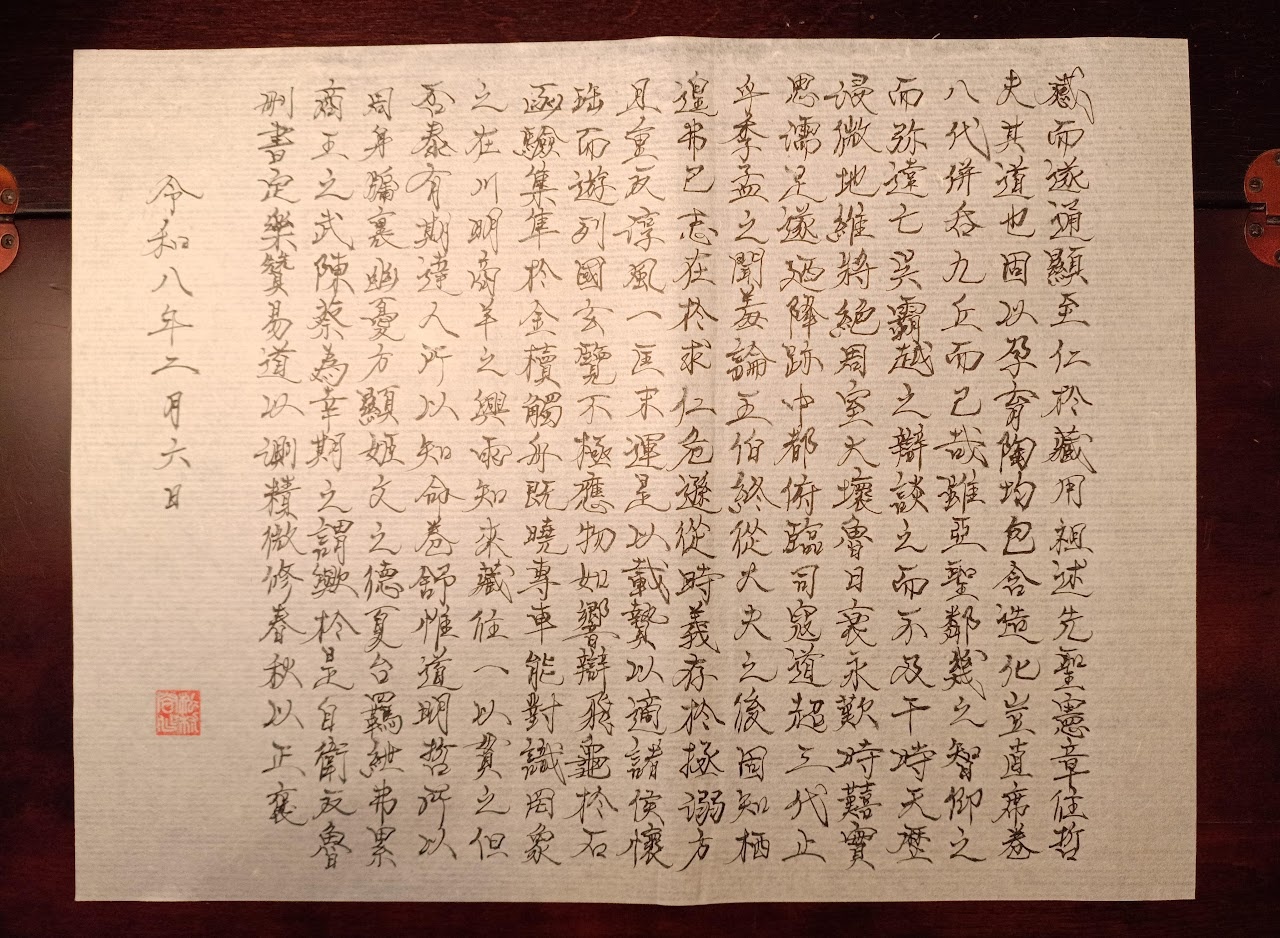 感而遂通顯至仁於藏用祖述先聖憲章往哲
夫其道也固以孕育陶均包含造化豈直席卷
八代併吞九丘而已哉雖亞聖鄰幾之智仰之
而弥遠亡吴霸越之辯談之而不及于時天歷
浸微地維將絕周室大壞魯日衰永歎時囏實
思濡足遂廼降跡中都俯臨司寇道超三代止
乎季孟之間羞論五伯終從大夫之後固知栖
遑弗已志在於求仁危遜從時義存於拯溺方
且重反淳風一匡末運是以載贄以適諸侯懷
珤而遊列國玄覽不極應物如響辯飛龜於石
函驗集隼於金櫝觸舟既曉專車能對識罔象
之在川明商羊之興雨知來藏往一以貫之但
否泰有期達人所以知命卷舒惟道明哲所以
周身牖裏幽憂方顯姬文之德夏台羈紲弗累
商王之武陳蔡為幸期之謂歟於是自衛反魯
刪書定樂贊易道以測精微修春秋以正褒
令和八年二月六日